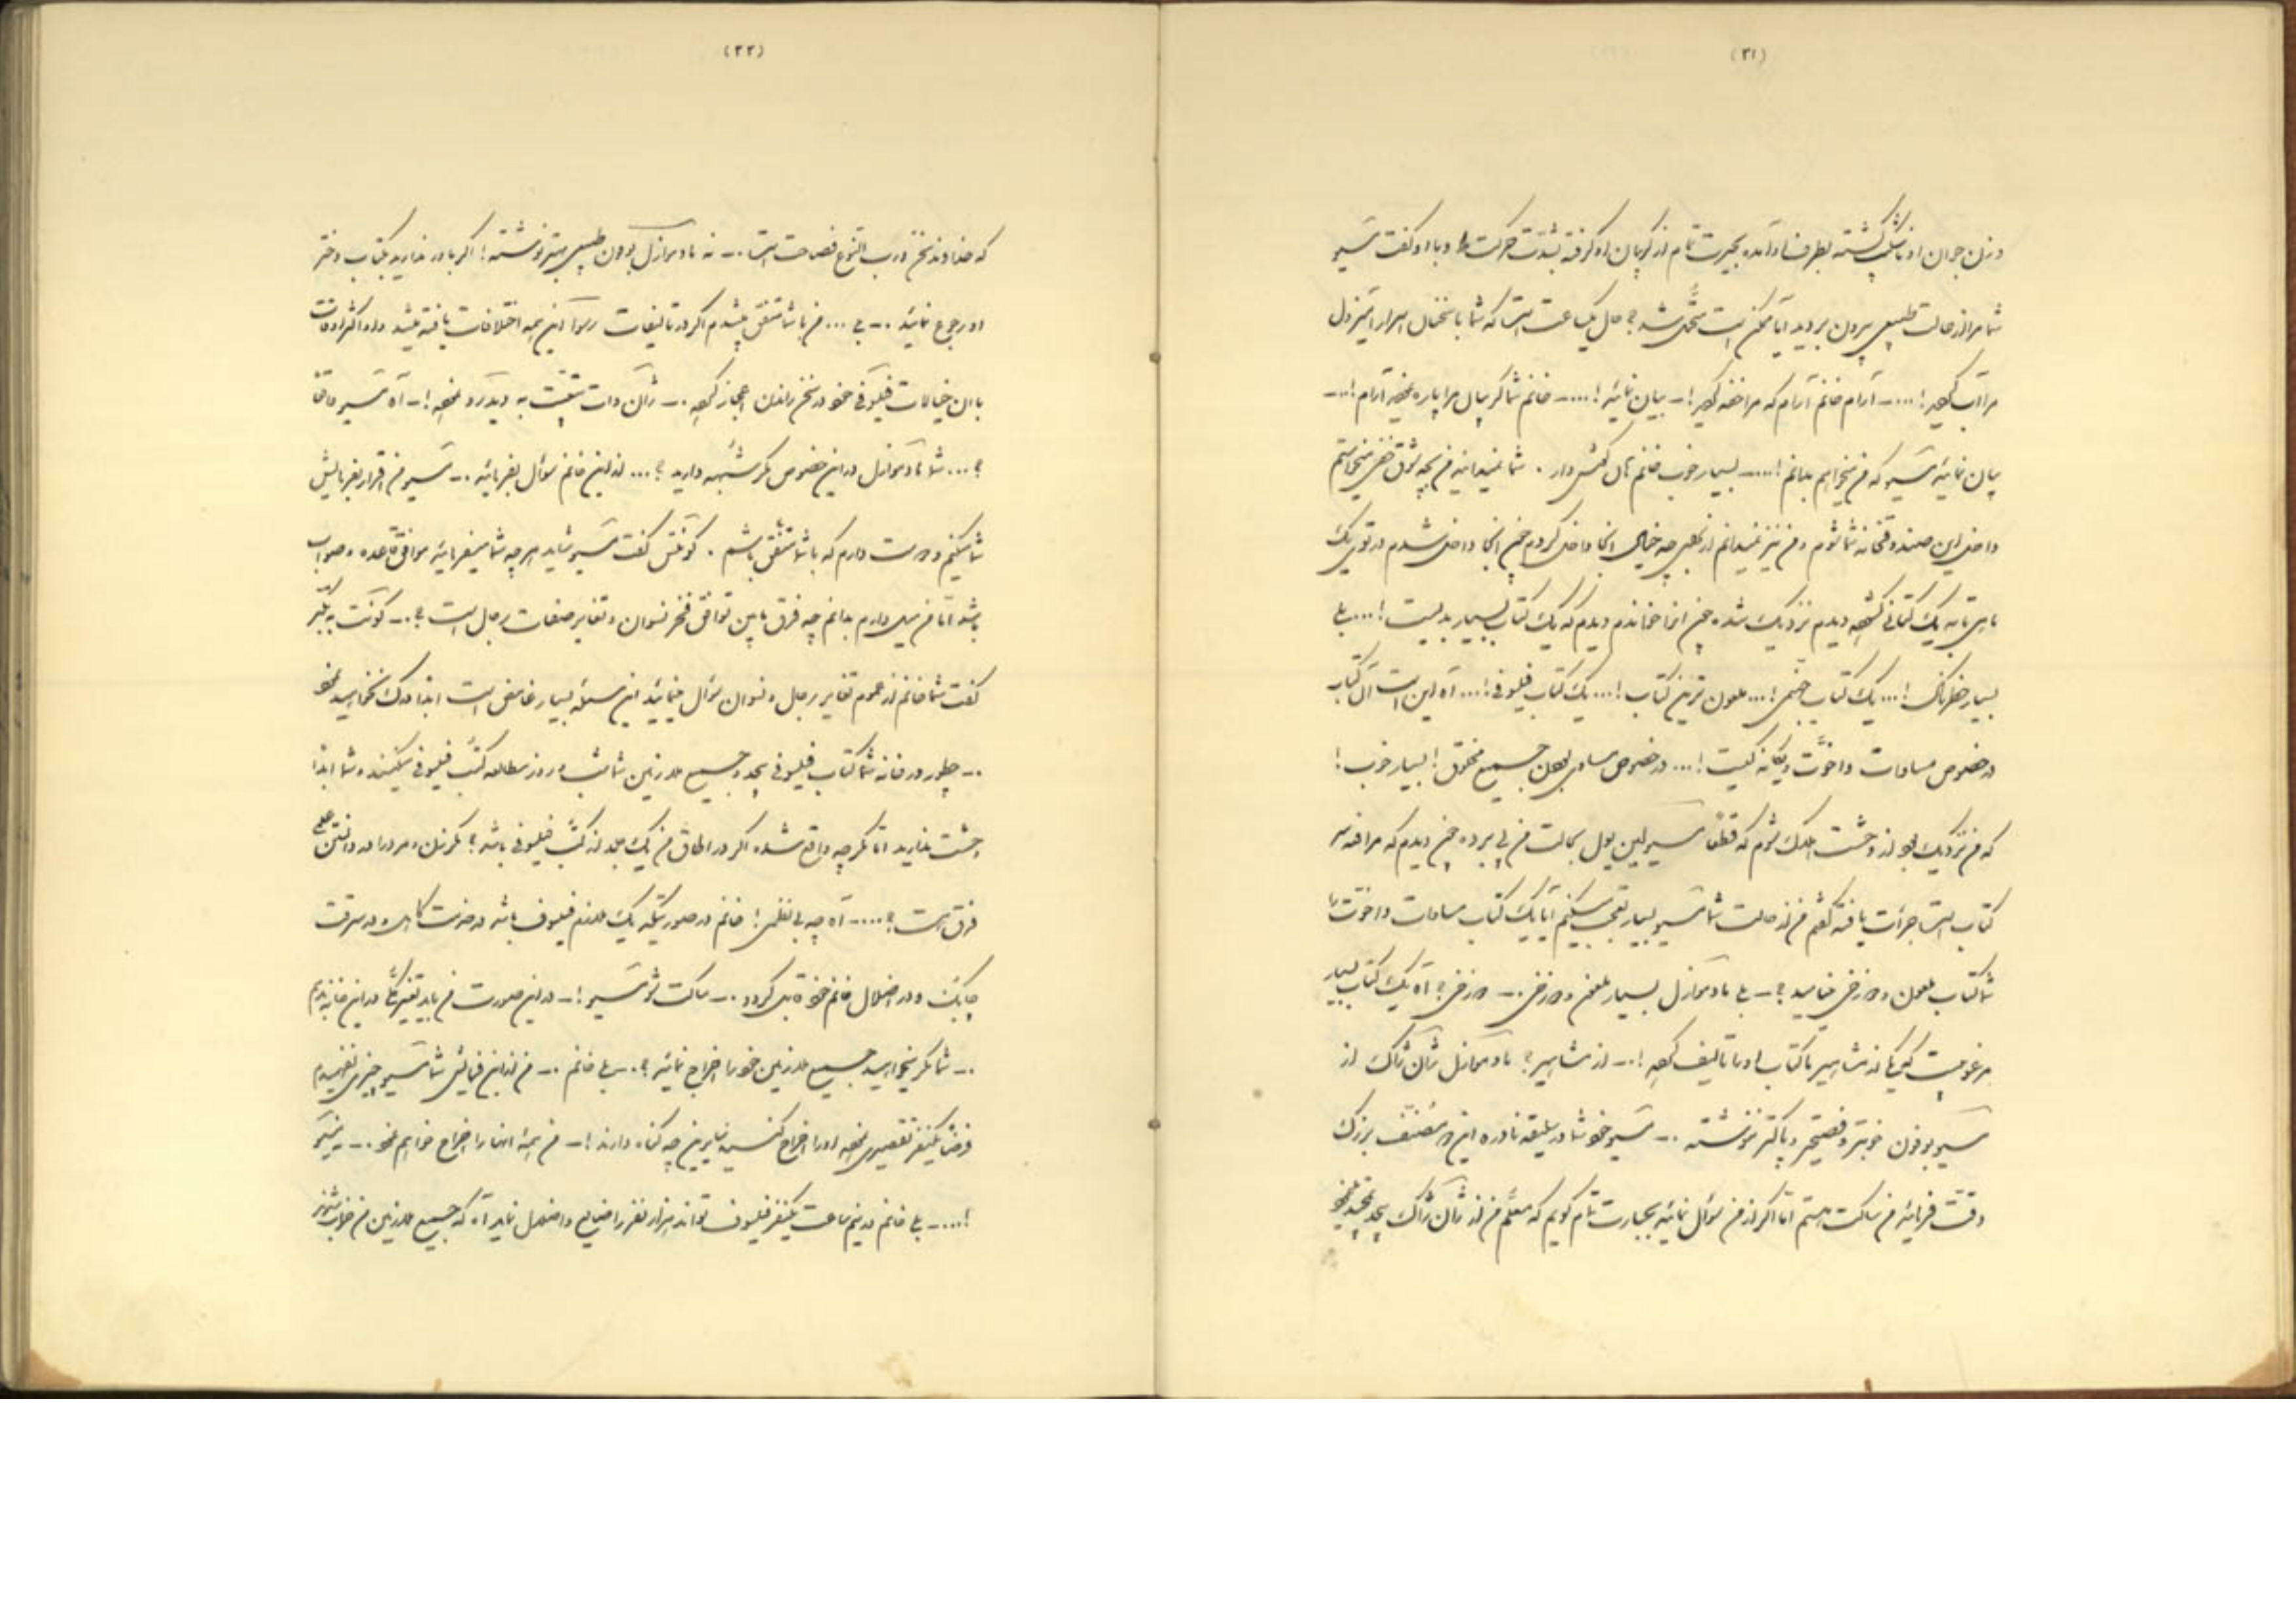 (۳۱)
وزن جوان او بطرف او آمده بحیرت تمام از گریبان او گرفته بشدت حرکت داد و با او گفت مسیو
شما مرا از حالت طبیعی بیرون بردید آیا ممکن است متحمل شد؟ حال یک ساعت است که شما با سخنان اسرار آمیز دل
مرا آب کردید!... – آرام خانم آرام که مرا خفه کردید! – بیان نمائید!... – خانم شما گریبان مرا پاره نمودید آرام!.. –
بیان نمائید مسیو که من میخواهم بدانم!... – بسیار خوب خانم گوش دار . شما نمیدانید من بچه شوق میخواستم
داخل این صندوقخانه شما شوم و من نیز نمیدانم از بهر چه خیال آنجا داخل کردم چون آنجا داخل شدم در توی یک
یک کتابی دیدم نزدیک شده چون آنرا خواندم دیدم که یک کتاب بسیار بد است!... بلی
بسیار خطرناک!... یک کتاب جهنمی!... ملعون ترین کتاب!... یک کتاب فیلسوفی!... آه این است آن کتاب
در خصوص مساوات و اخوت و یگانه گیست!... در خصوص مساوی بودن جمیع مخلوق! بسیار خوب!
که من نزدیک بود از وحشت هلاک شوم که قطعا مسیو لین پول بحالت من پی برده چون دیدم که مرا
کتاب است جرأت یافته گفتم من از حالت شما مسیو بسیار تعجب میکنم آیا یک کتاب مساوات و اخوت را
شما کتاب ملعون و دوزخی مینامید؟ – بلی مادموازل بسیار ملعون و دوزخی . – دوزخی؟ آه یک کتاب بسیار
مرغوبیست که یکی از مشاهیر ما کتاب او را تالیف کرده!.. – از مشاهیر؟ مادموازل ژان ژاک از
مسیو بوفون خوبتر و فصیحتر و پاکتر نوشته . – مسیو خود شما در سلیقه نادره این دو مصنف بزرگ
دقت فرمائید من ساکت هستم اما اگر از من سؤال نمائید بجسارت تمام گویم که معلم من از ژان ژاک
(۳۲)
که خداوند سخن و رب النوع فصاحت است . – نه مادموازل بوفون طبیعی بهتر نوشته! اگر باور ندارید بکتاب دفتر
او رجوع نمائید . – بلی ... من با شما متفق میشدم اگر در تالیفات روسو این همه اختلافات یافته میشد و او اکثر اوقات
با آن خیالات فیلسوفی خود در سخن راندن اعجاز کرده . – ژان ژاک به دیدرو نموده! – آه مسیو واقعا
؟... شما مادموازل در این خصوص مگر شبهه دارید؟... از این خانم سؤال بفرمائید . – مسیو من اقرار بفرمایش
شما میکنم دوست دارم که با شما متفق باشم . کونتس گفت مسیو شاید هر چه شما میفرمائید موافق قاعده و صواب
باشد اما من میل دارم بدانم چه فرق مابین توافق فخر نسوان و تغایر صفات رجال است؟ . – کونت
گفت شما خانم از عموم تغایر رجال و نسوان سؤال مینمائید این مسئله بسیار غامض است ابدا درک نخواهید نمود
. – چطور در خانه شما کتاب فیلسوفی بیحد و جمیع ملازمین شما شب و روز مطالعه کتب فیلسوفی میکنند و شما ابدا
وحشت ندارید اما مگر چه واقع شده اگر در اطاق من یک جلد از کتب فیلسوفی باشد؟ مگر زنان و مردان در دانستن علم
فرق است؟.... – آه چه بی نظمی! خانم در صورتیکه یک ملازم فیلسوف باشد در خدمت کاهل و در سرقت
چابک و در اضلال خانم خود گردد . – ساکت شو مسیو! – در این صورت من باید تغییر کلی در این خانه بدهم
. – شما مگر میخواهید جمیع ملازمین خود را اخراج نمائید؟ . – بلی خانم . – من از این فرمایش شما مسیو چیزی نفهمیدم
فرضا یکنفر تقصیری نموده او را اخراج کنید سایرین چه گناه دارند! – من همه آنها را اخراج خواهم نمود . –
!.... – بلی خانم در نیم ساعت یکنفر فیلسوف تواند هزار نفر را ضایع و اضلال نماید آه که جمیع ملازمین من خراب شدند